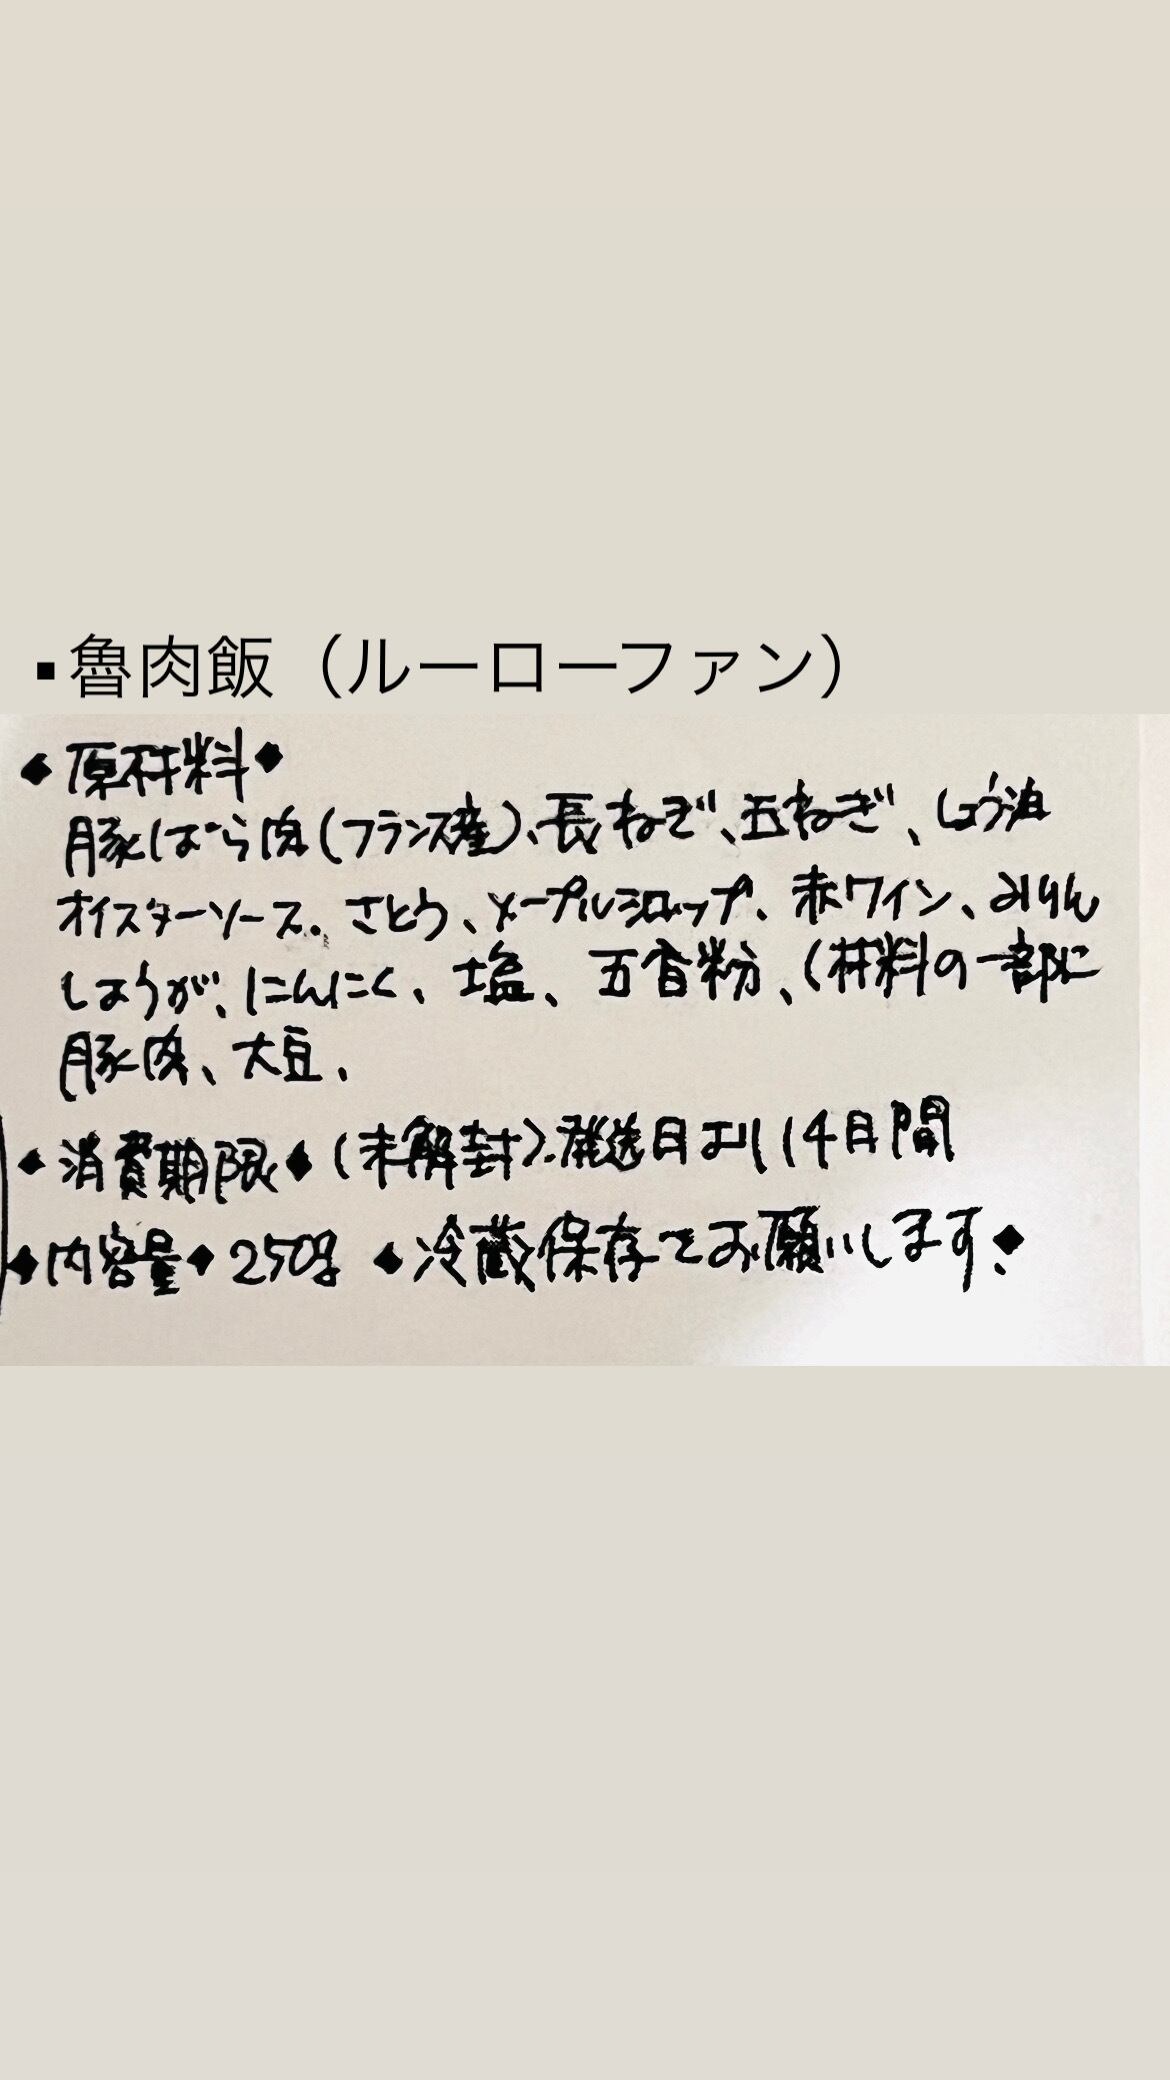 ▪魯肉飯（ルーローファン）
◆原材料◆
豚ばら肉(フランス産)、長ねぎ、玉ねぎ、しょう油
オイスターソース、さとう、メープルシロップ、赤ワイン、みりん
しょうが、にんにく、塩、五香粉、(材料の一部に
豚肉、大豆、
◆消費期限◆(未解封)発送日より14日間
◆内容量◆250g ◆冷蔵保存でお願いします◆